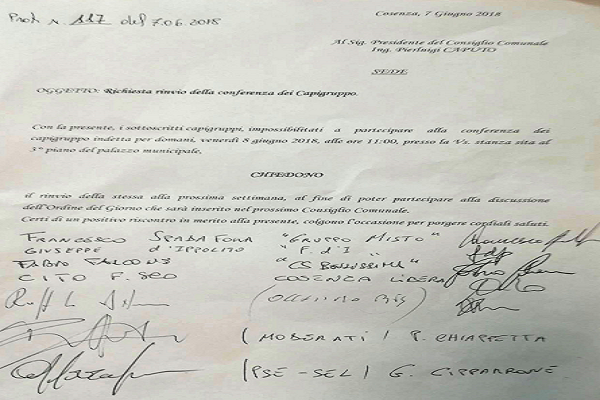 Prot. N. 117 del 7.06.2018
Cosenza, 7 Giugno 2018
Al Sig. Presidente del Consiglio Comunale
Ing. Pierluigi CAPUTO
SEDE
OGGETTO: Richiesta rinvio della conferenza dei Capigruppo.
Con la presente, i sottoscritti capigruppi, impossibilitati a partecipare alla conferenza dei
capigruppo indetta per domani, venerdì 8 giugno 2018, alle ore 11:00, presso la Vs. stanza sita al
3° piano del palazzo municipale,
CHIEDONO
il rinvio della stessa alla prossima settimana, al fine di poter partecipare alla discussione
dell'Ordine del Giorno che sarà inserito nel prossimo Consiglio Comunale.
Certi di un positivo riscontro in merito alla presente, colgono l'occasione per porgere cordiali saluti.
FRANCESCO SPADAFORA "GRUPPO MISTO"
GIUSEPPE d'IPPOLITO "F. d'I"
FABIO FALCONE "CS BELLISSIMA"
CITO F. SCO COSENZA LIBERA
(MODERATI) P. CHIAPPETTA
(PSE-SEL) G. CIPPARRONE